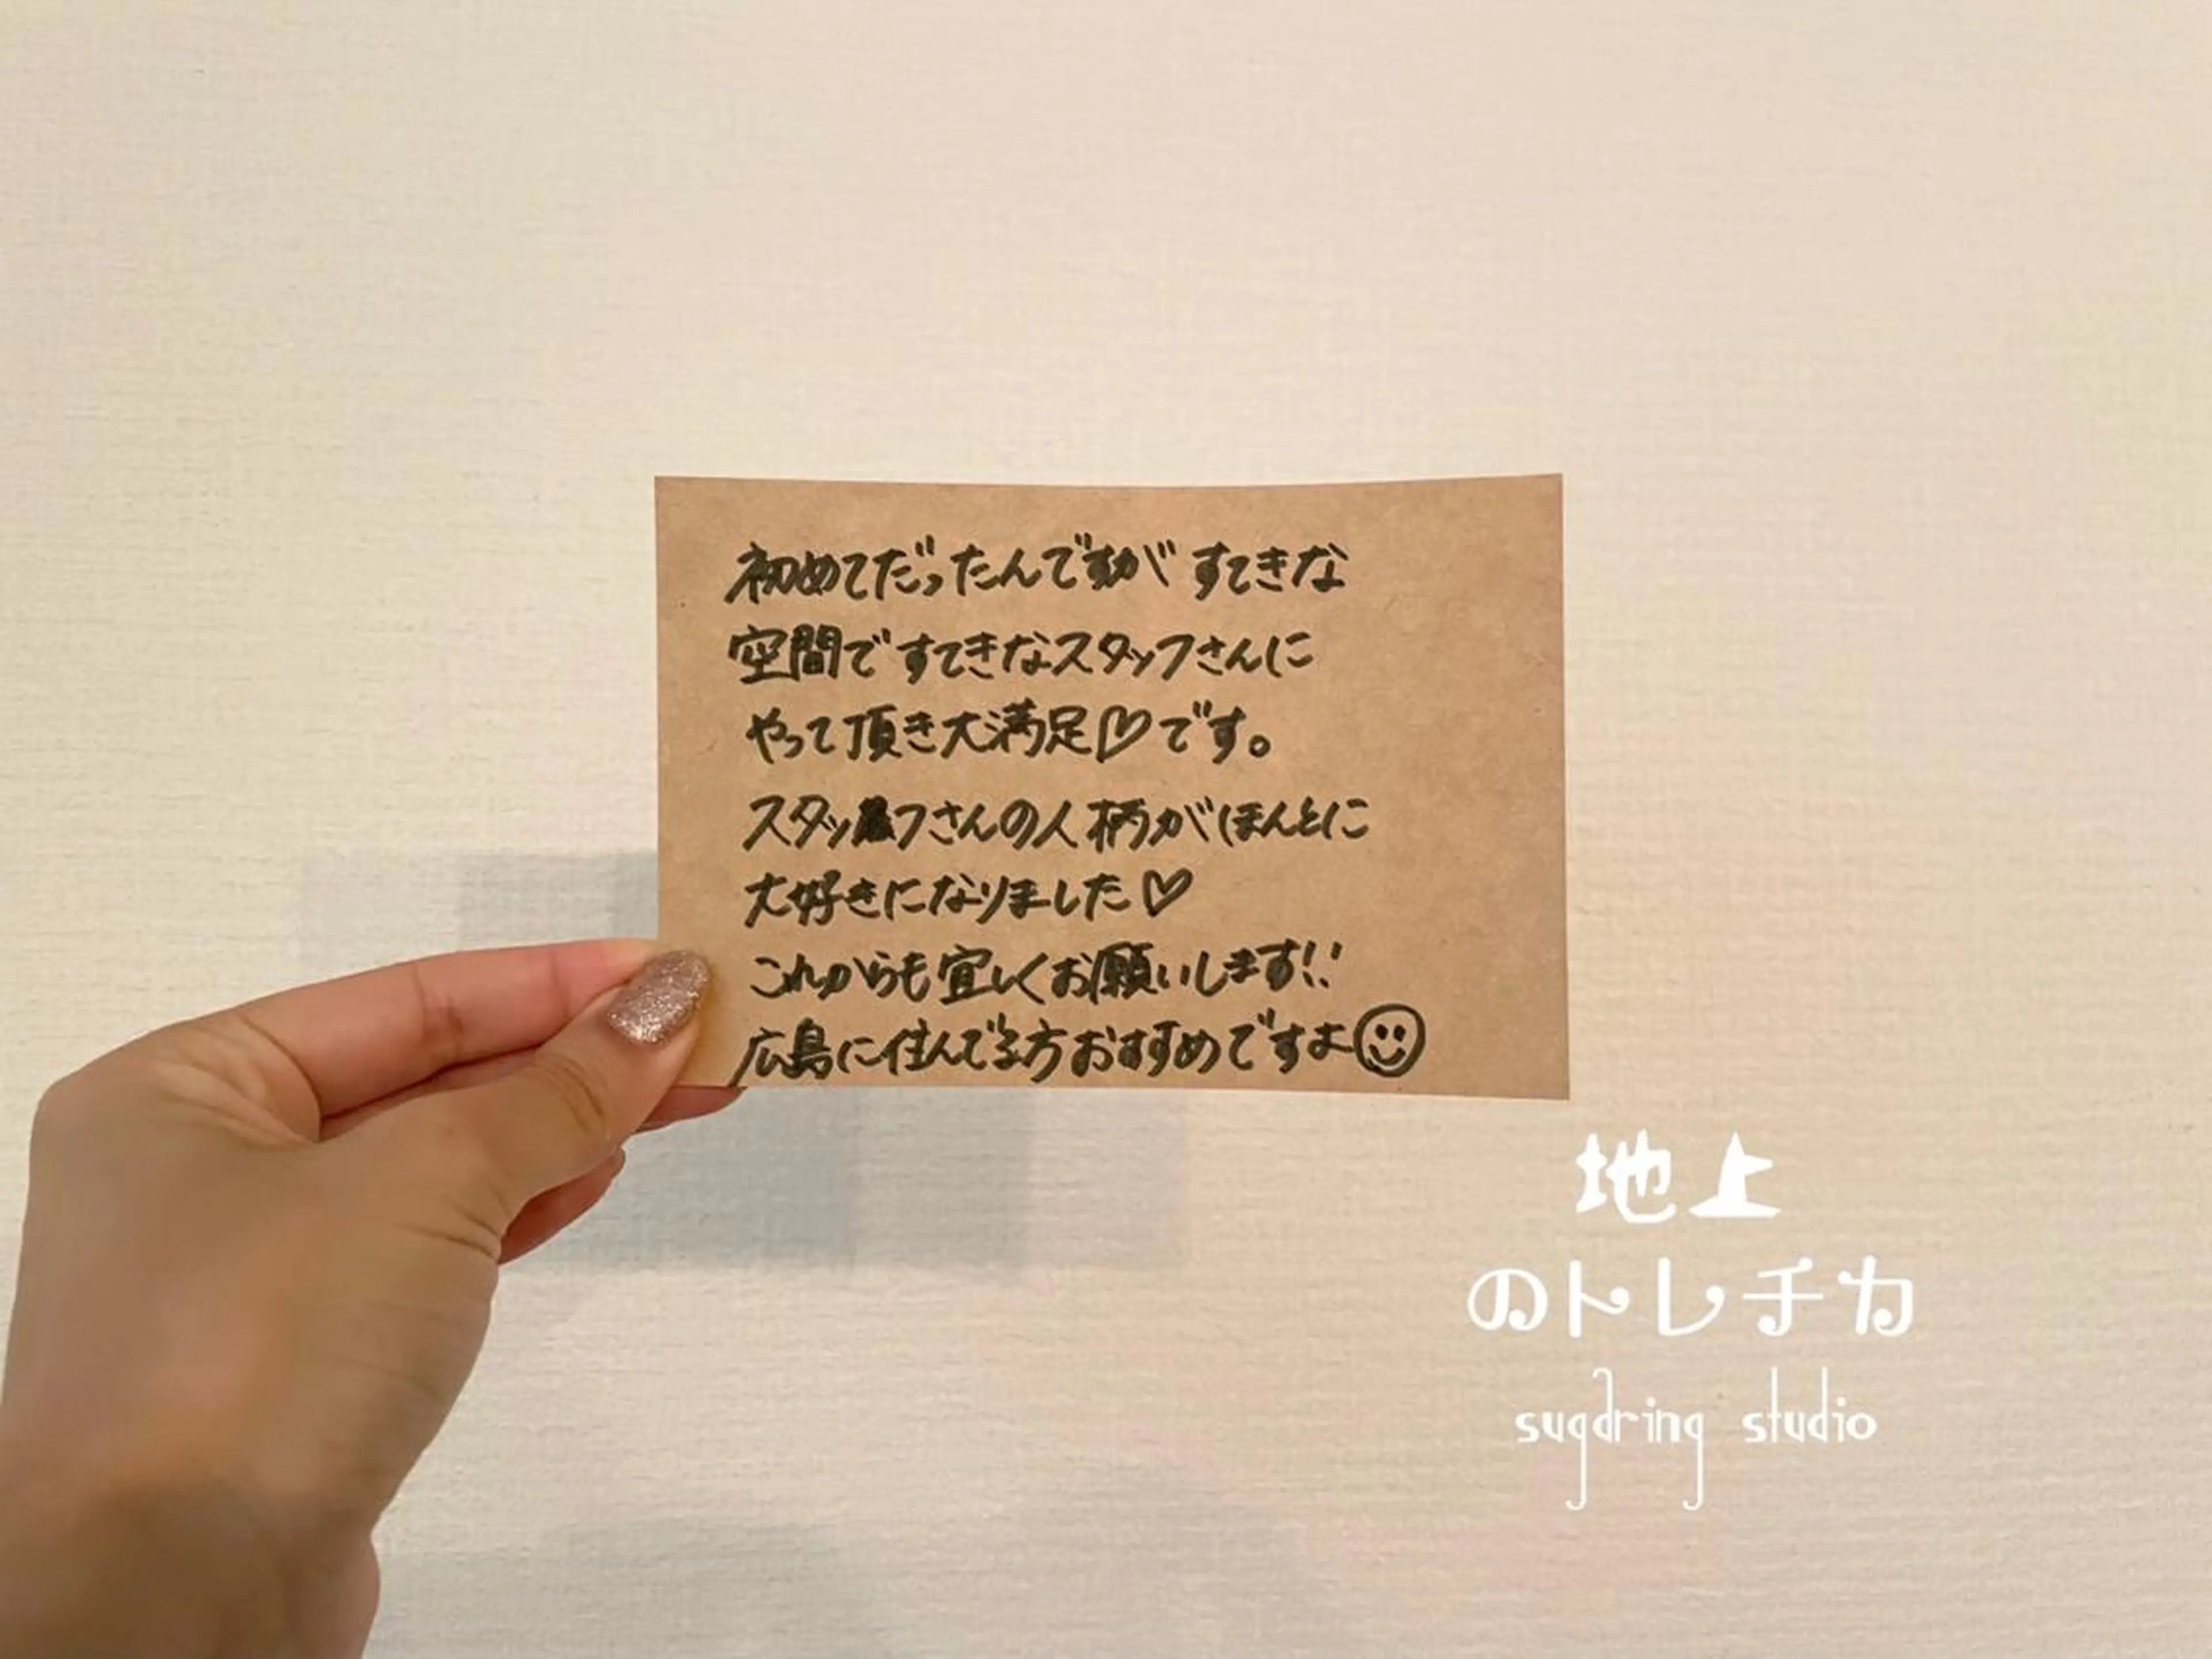 初めてだったんですがすてきな
空間ですてきなスタッフさんに
やって頂き大満足♡です。
スタッフさんの人柄がほんとに
大好きになりました♡
これからも宜しくお願いします!!
広島に住んでる方おすすめですよ☺
地上
のトレチカ
sugaring studio